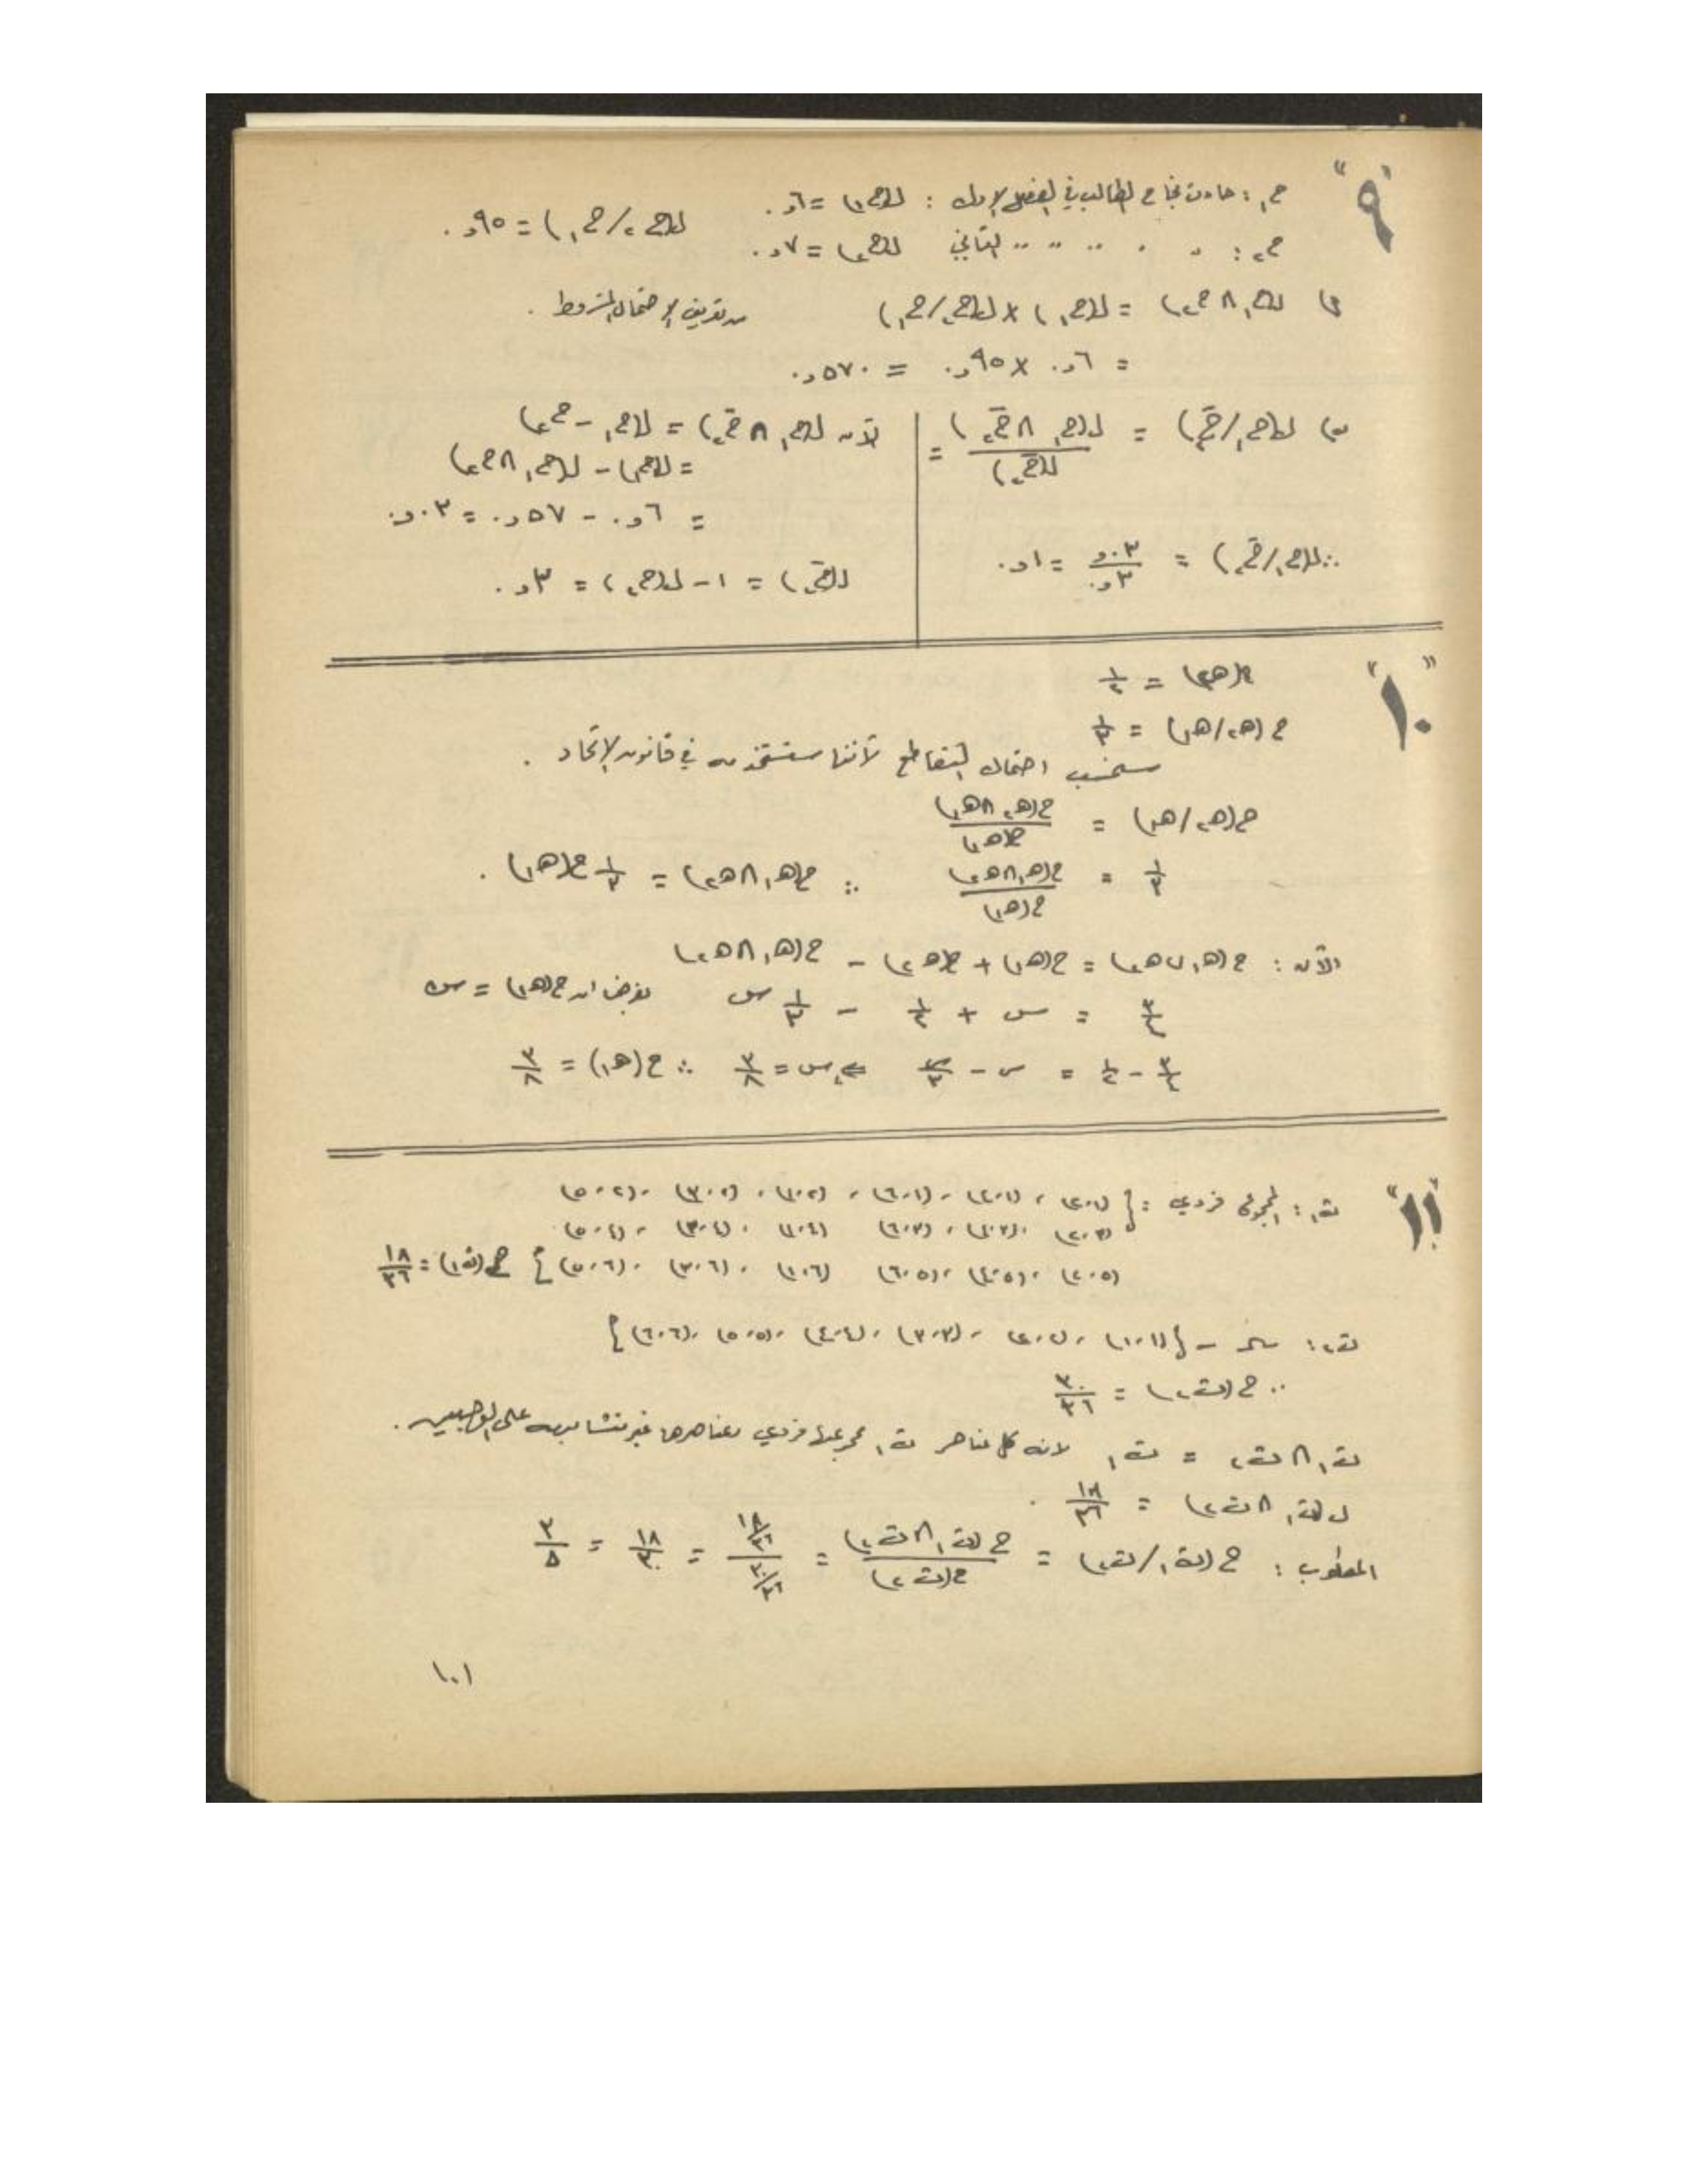 "٩"
ح١ : حادث نجاح الطالب في الفصل الأول : ل(ح١) = ٦و٠
ل(ح٢/ح١) = ٩٥و٠
ح٢ : " " " " " الثاني ل(ح٢) = ٧و٠
أ) ل(ح١ ∩ ح٢) = ل(ح١) × ل(ح٢/ح١) من تعريف الإحتمال المشروط .
= ٦و٠ × ٩٥و٠ = ٥٧٠و٠
ب) ل(ح١/ح̄٢) = ل(ح١ ∩ ح̄٢) / ل(ح̄٢) =
الآن ل(ح١ ∩ ح̄٢) = ل(ح١ - ح٢)
= ل(ح١) - ل(ح١ ∩ ح٢)
= ٦و٠ - ٥٧و٠ = ٠٣و٠
ل(ح̄٢) = ١ - ل(ح٢) = ٣و٠
∴ ل(ح١/ح̄٢) = ٠٣و٠ / ٣و٠ = ١و٠
"١٠"
ح(ه٢) = ١/٢
ح(ه٢/ه١) = ١/٣
سنحسب احتمال التقاطع لأننا سنستخدمه في قانون الإتحاد .
ح(ه٢/ه١) = ح(ه٢ ∩ ه١) / ح(ه١)
١/٣ = ح(ه١ ∩ ه٢) / ح(ه١) ∴ ح(ه١ ∩ ه٢) = ١/٣ ح(ه١) .
الآن : ح(ه١ ∪ ه٢) = ح(ه١) + ح(ه٢) - ح(ه١ ∩ ه٢)
٣/٤ = س + ١/٢ - ١/٣ س بفرض ان ح(ه١) = س
٣/٤ - ١/٢ = س - س/٣ ⇐ س = ٣/٨ ∴ ح(ه١) = ٣/٨
"١١"
ت١ : المجموع فردي : { (١،٢) ، (١،٤) ، (١،٦) ، (٢،١) ، (٢،٣) ، (٢،٥) ،
(٣،٢) ، (٣،٤) ، (٣،٦) (٤،١) ، (٤،٣) ، (٤،٥)
(٥،٢) ، (٥،٤) ، (٥،٦) (٦،١) ، (٦،٣) ، (٦،٥) } ح(ت١) = ١٨/٣٦
ت٢ : - { (١،١) ، (٢،٢) ، (٣،٣) ، (٤،٤) ، (٥،٥) ، (٦،٦) }
∴ ح(ت٢) = ٣٠/٣٦
ت١ ∩ ت٢ = ت١ لانه كل عناصر ت١ مجموعها فردي وعناصرها غير متشابهه على الوجهين .
ل(ت١ ∩ ت٢) = ١٨/٣٦ .
المطلوب : ح(ت١/ت٢) = ح(ت١ ∩ ت٢) / ح(ت٢) = ١٨/٣٦ / ٣٠/٣٦ = ١٨/٣٠ = ٣/٥
١٠١